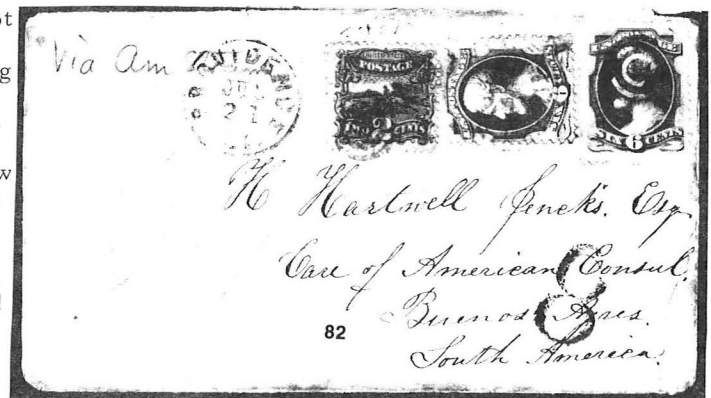 ot
g
w
Via Am
21
POSTAGE
TWO 2 CENTS
SIX 6 CENTS
H Hartwell Jencks. Esq
Care of American Consul.
Buenos Ayres.
South America.
8
82